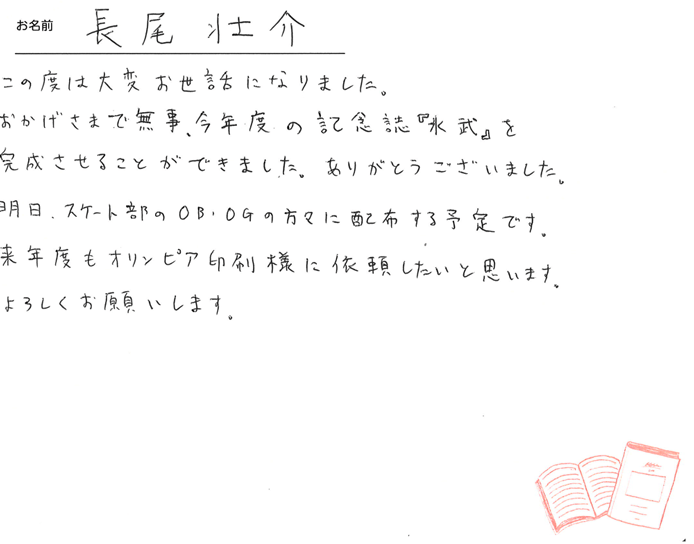 お名前 長尾 壮介
この度は大変お世話になりました。
おかげさまで無事、今年度の記念誌『氷武』を
完成させることができました。ありがとうございました。
明日、スケート部のOB・OGの方々に配布する予定です。
来年度もオリンピア印刷様に依頼したいと思います。
よろしくお願いします。